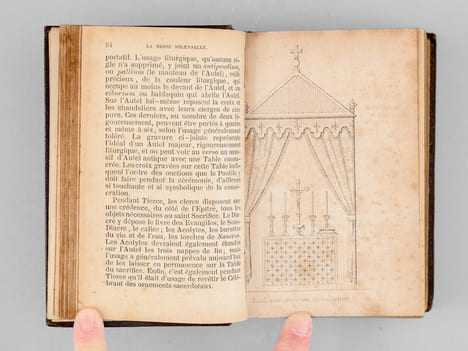 84 LA MESSE SOLENNELLE.
portatif. L'usage liturgique, qu'aucune rè-
gle n'a supprimé, y joint un antipendium,
ou pallium (le manteau de l'Autel), voile
précieux, de la couleur liturgique, qui
occupe au moins le devant de l'Autel, et un
ciborium ou baldaquin qui abrite l'Autel.
Sur l'Autel lui-même reposent la croix et
les chandeliers avec leurs cierges de cire
pure. Ces derniers, au nombre de deux ri-
goureusement, peuvent être portés à quatre
et même à six, selon l'usage généralement
toléré. La gravure ci-jointe représente
l'idéal d'un Autel majeur, rigoureusement
liturgique, et on peut voir au verso un mas-
sif d'Autel antique avec une Table consa-
crée. Les croix gravées sur cette Table indi-
quent l'ordre des onctions que le Pontife y
doit faire pendant la cérémonie, d'ailleurs
si touchante et si symbolique de la consé-
cration.
Pendant Tierce, les clercs disposent sur
une crédence, du côté de l'Epitre, tous les
objets nécessaires au saint Sacrifice. Le Dia-
cre y dépose le livre des Evangiles; le Sous-
Diacre, le calice; les Acolytes, les burettes
du vin et de l'eau, les torches de Sanctus.
Les Acolytes devraient également étendre
sur l'Autel les trois nappes de lin; mais
l'usage a généralement prévalu aujourd'hui
de les laisser en permanence sur la Table
du sacrifice. Enfin, c'est également pendant
Tierce qu'il était d'usage de revêtir le Célé-
brant des ornements sacerdotaux.